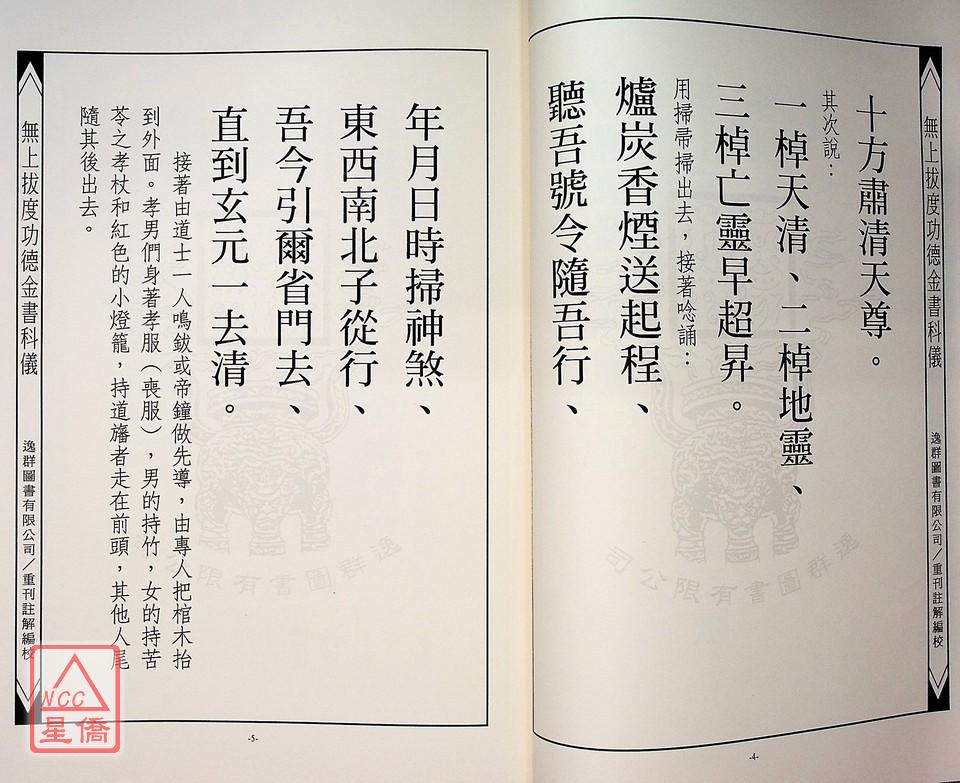 無上拔度功德金書科儀
逸群圖書有限公司／重刊註解編校
十方肅清天尊。
其次說：
一棹天清、二棹地靈、
三棹亡靈早超昇。
用掃帚掃出去，接著唸誦：
爐炭香煙送起程、
聽吾號令隨吾行、
-4-
年月日時掃神煞、
東西南北子從行、
吾今引爾省門去、
直到玄元一去清。
接著由道士一人鳴鈸或帝鐘做先導，由專人把棺木抬
到外面。孝男們身著孝服（喪服），男的持竹，女的持苦
苓之孝杖和紅色的小燈籠，持道旛者走在前頭，其他人尾
隨其後出去。
無上拔度功德金書科儀
逸群圖書有限公司／重刊註解編校
-5-
逸群圖書有限公司
逸群圖書有限公司
NCC
星僑